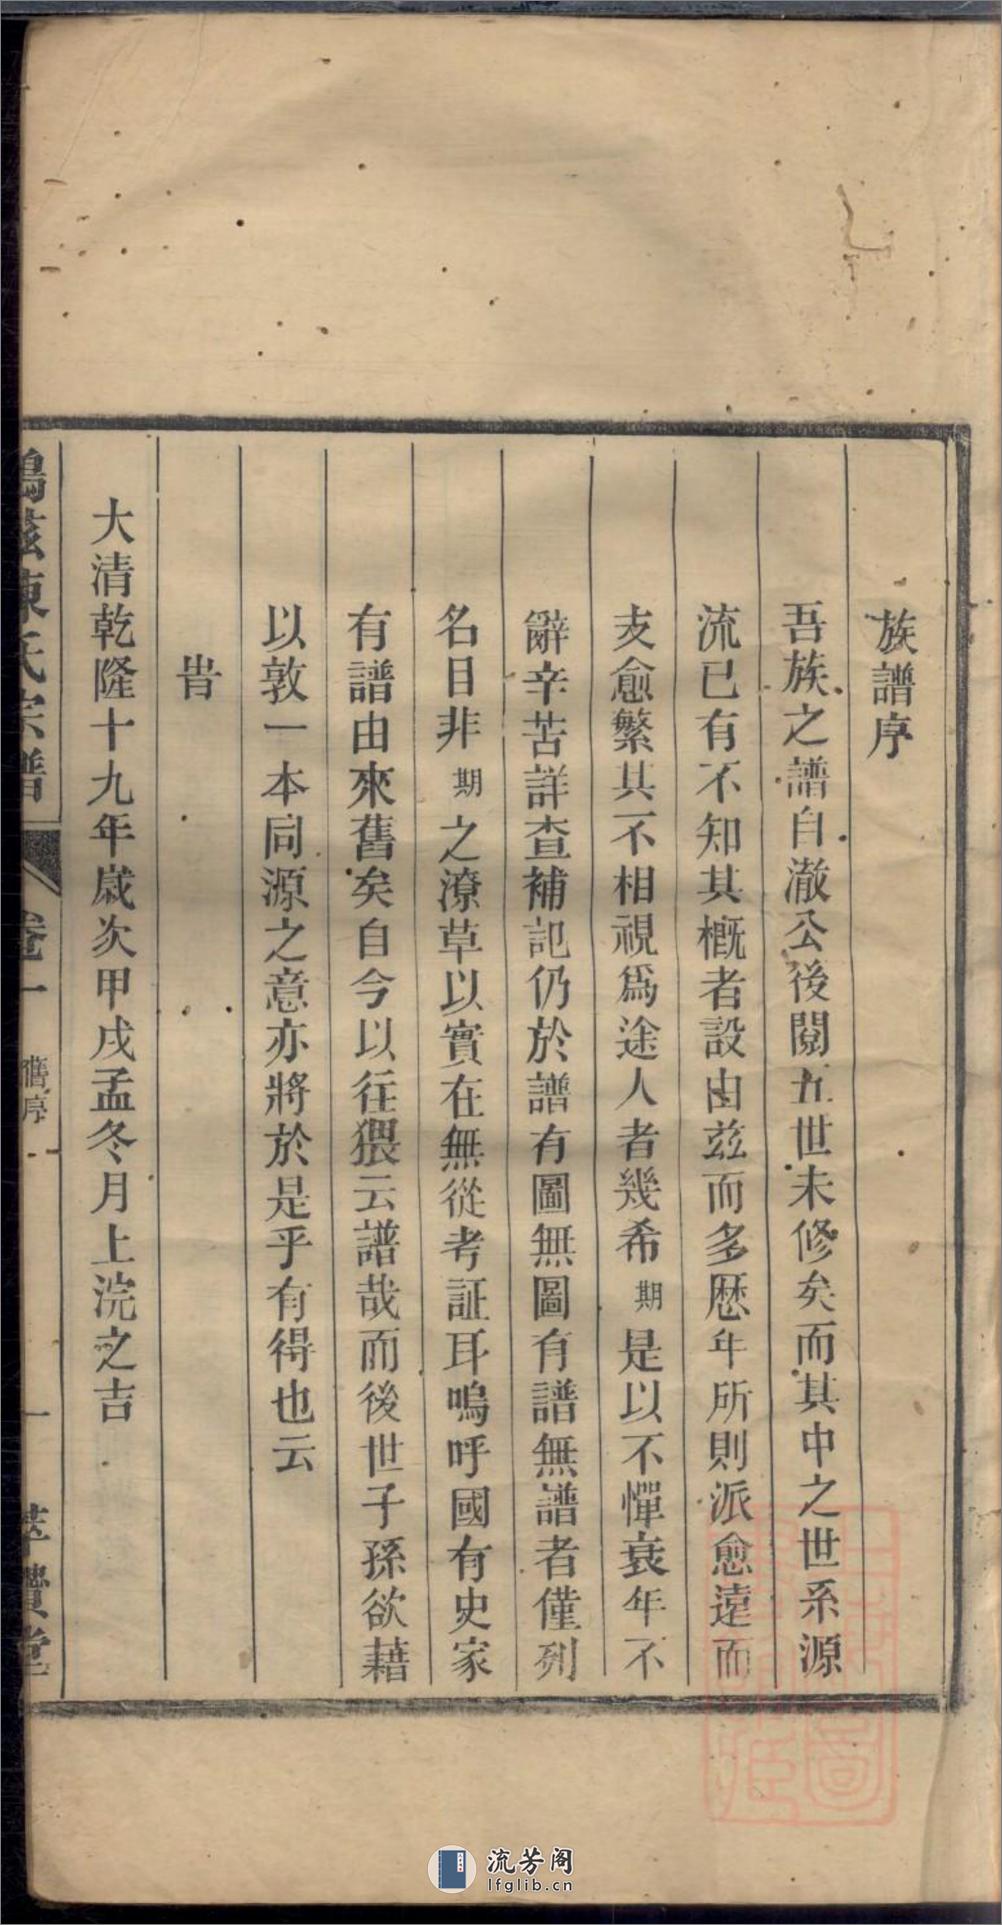 族譜序
吾族之譜自澈公後閱五世未修矣而其中之世系源
流已有不知其概者設由兹而多歷年所則派愈遠而
支愈繁其不相視爲途人者幾希期是以不憚衰年不
辭辛苦詳查補記仍於譜有圖無圖有譜無譜者僅列
名目非期之潦草以實在無從考証耳嗚呼國有史家
有譜由來舊矣自今以往猥云譜哉而後世子孫欲藉
以敦一本同源之意亦將於是乎有得也云
旹
大清乾隆十九年歲次甲戌孟冬月上浣之吉
陳氏宗譜
卷一
舊序
一
萃賢堂
流芳阁
lfglib.cn